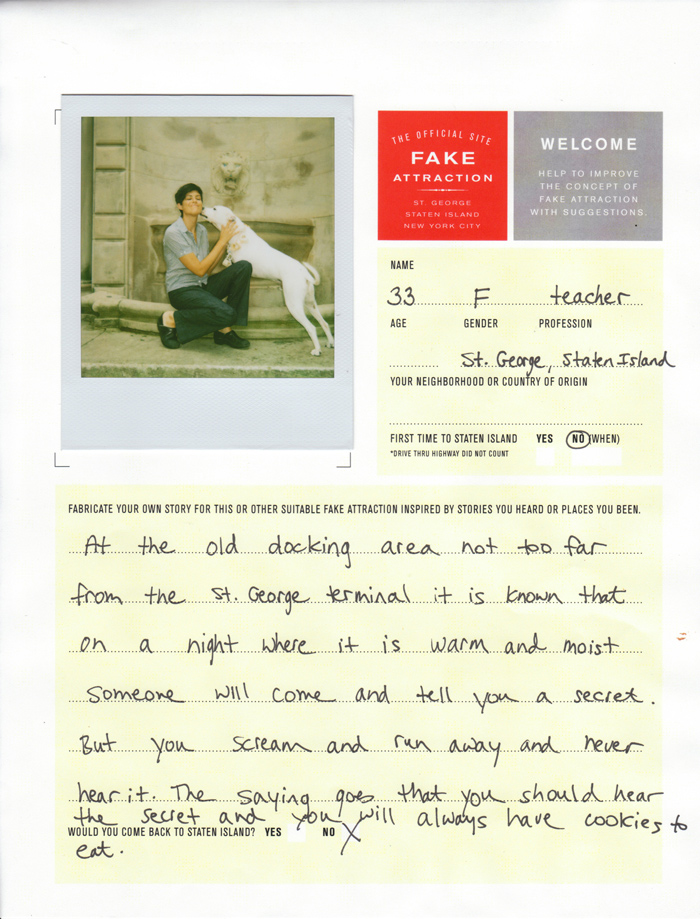 THE OFFICIAL SITE
FAKE
ATTRACTION
ST. GEORGE
STATEN ISLAND
NEW YORK CITY
WELCOME
HELP TO IMPROVE
THE CONCEPT OF
FAKE ATTRACTION
WITH SUGGESTIONS.
NAME
33 F teacher
AGE GENDER PROFESSION
St. George, Staten Island
YOUR NEIGHBORHOOD OR COUNTRY OF ORIGIN
FIRST TIME TO STATEN ISLAND YES NO (WHEN)
*DRIVE THRU HIGHWAY DID NOT COUNT
FABRICATE YOUR OWN STORY FOR THIS OR OTHER SUITABLE FAKE ATTRACTION INSPIRED BY STORIES YOU HEARD OR PLACES YOU BEEN.
At the old docking area not too far
from the St. George terminal it is known that
on a night where it is warm and moist
someone will come and tell you a secret.
But you scream and run away and never
hear it. The saying goes that you should hear
the secret and you will always have cookies to
WOULD YOU COME BACK TO STATEN ISLAND? YES NO X
eat.